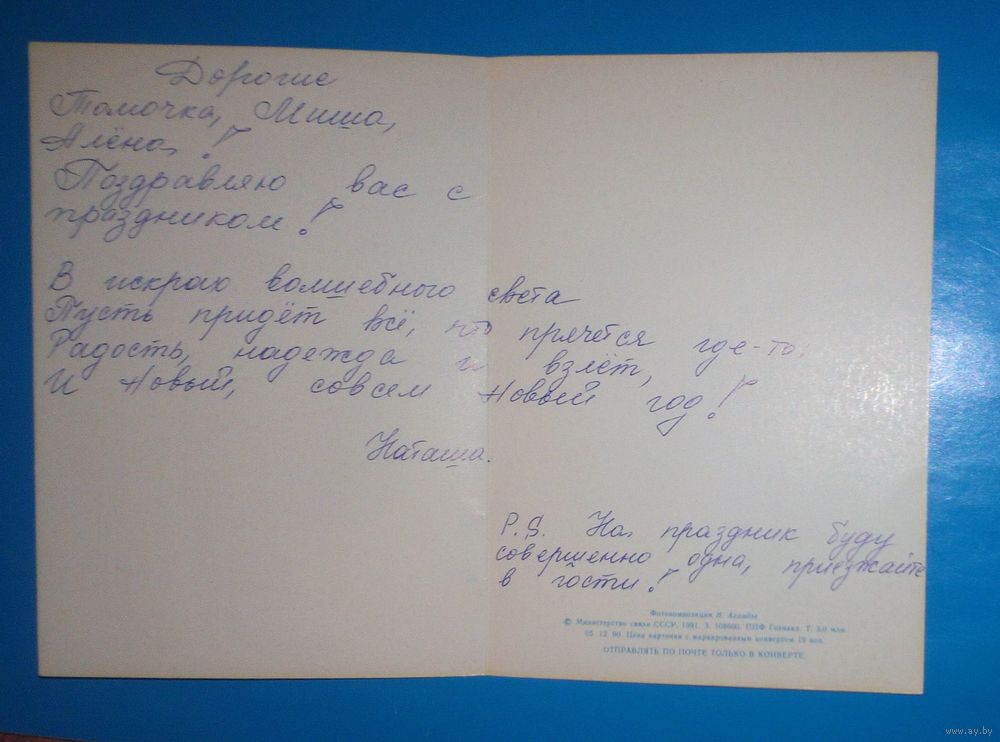 Дорогие
Томочка, Миша,
Алёна!
Поздравляю вас с
праздником!
В искраю волшебного света
Пусть придёт всё, что прячется где-то:
Радость, надежда и взлёт,
И Новый, совсем Новый год!
Наташа.
P.S. На праздник буду
совершенно одна, приезжайте
в гости!
Фотокомпозиция И.
© Министерство связи СССР, 1991. З. 108660. ППФ Гознака. Т. 3,0 млн.
05. 12. 90. Цена карточки с маркированным конвертом 19 коп.
ОТПРАВЛЯТЬ ПО ПОЧТЕ ТОЛЬКО В КОНВЕРТЕ.
www.ay.by